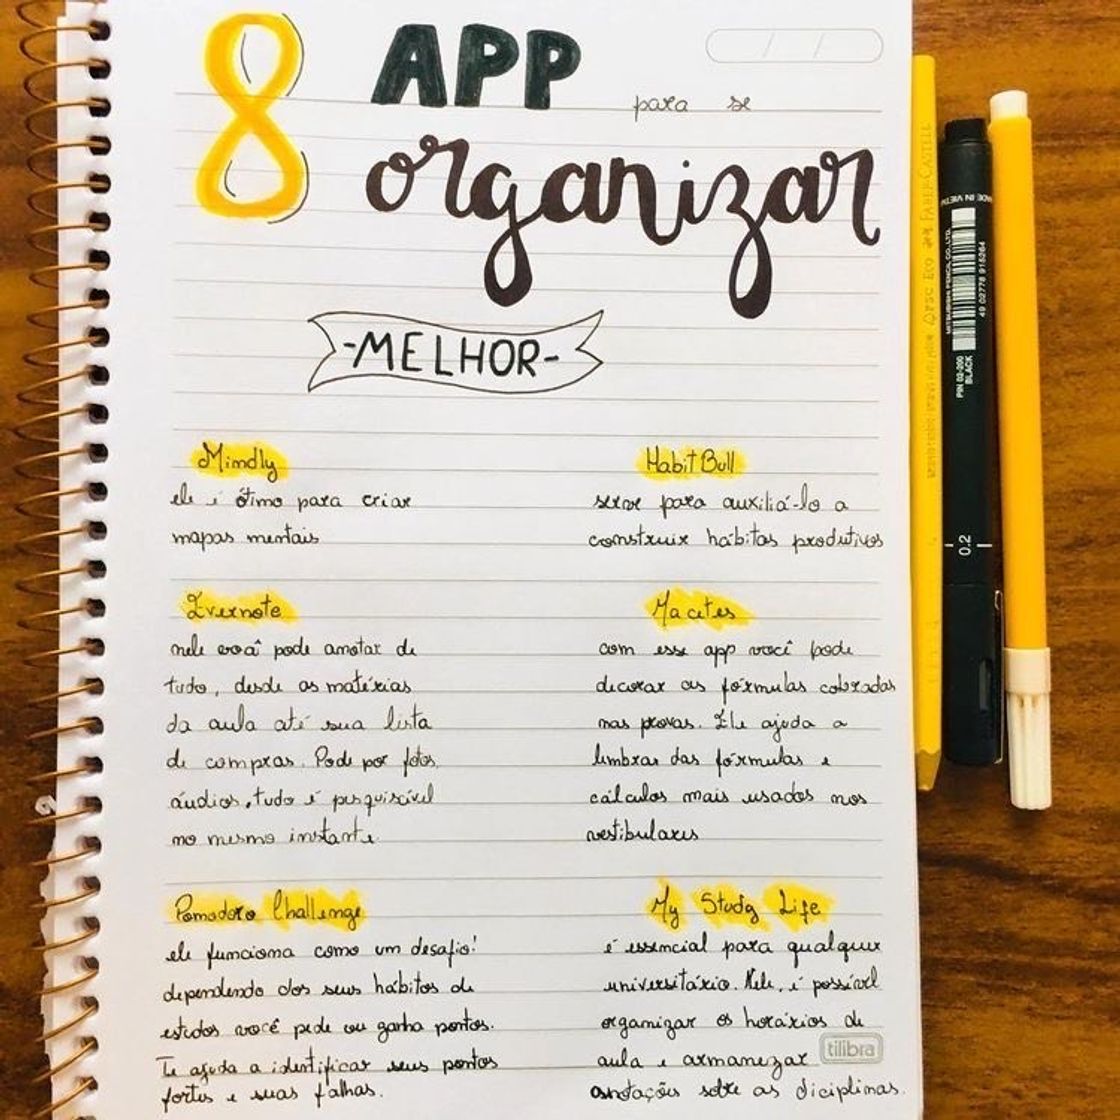 8 APP
para se
organizar
-MELHOR-
Mindly
ele é ótimo para criar
mapas mentais
Habit Bull
serve para auxiliá-lo a
construir hábitos produtivos
Evernote
nele você pode anotar de
tudo, desde as matérias
da aula até sua lista
de compras. Pode por fotos,
áudios, tudo é pesquisável
no mesmo instante
Macetes
com esse app você pode
decorar as fórmulas cobradas
nas provas. Ele ajuda a
lembrar das fórmulas e
cálculos mais usados nos
vestibulares
Pomodoro Challenge
ele funciona como um desafio!
dependendo dos seus hábitos de
estudos você pede ou ganha pontos.
Te ajuda a identificar seus pontos
fortes e suas falhas.
My Study Life
é essencial para qualquer
universitário. Nele, é possível
organizar os horários de
aula e armanezar
anotações sobre as diciplinas.
tilibra
FABER-CASTELL
MADE IN VIETNAM
MITSUBISHI PENCIL CO., LTD.
49 02778 915264
PIN 02-200
BLACK
0.2